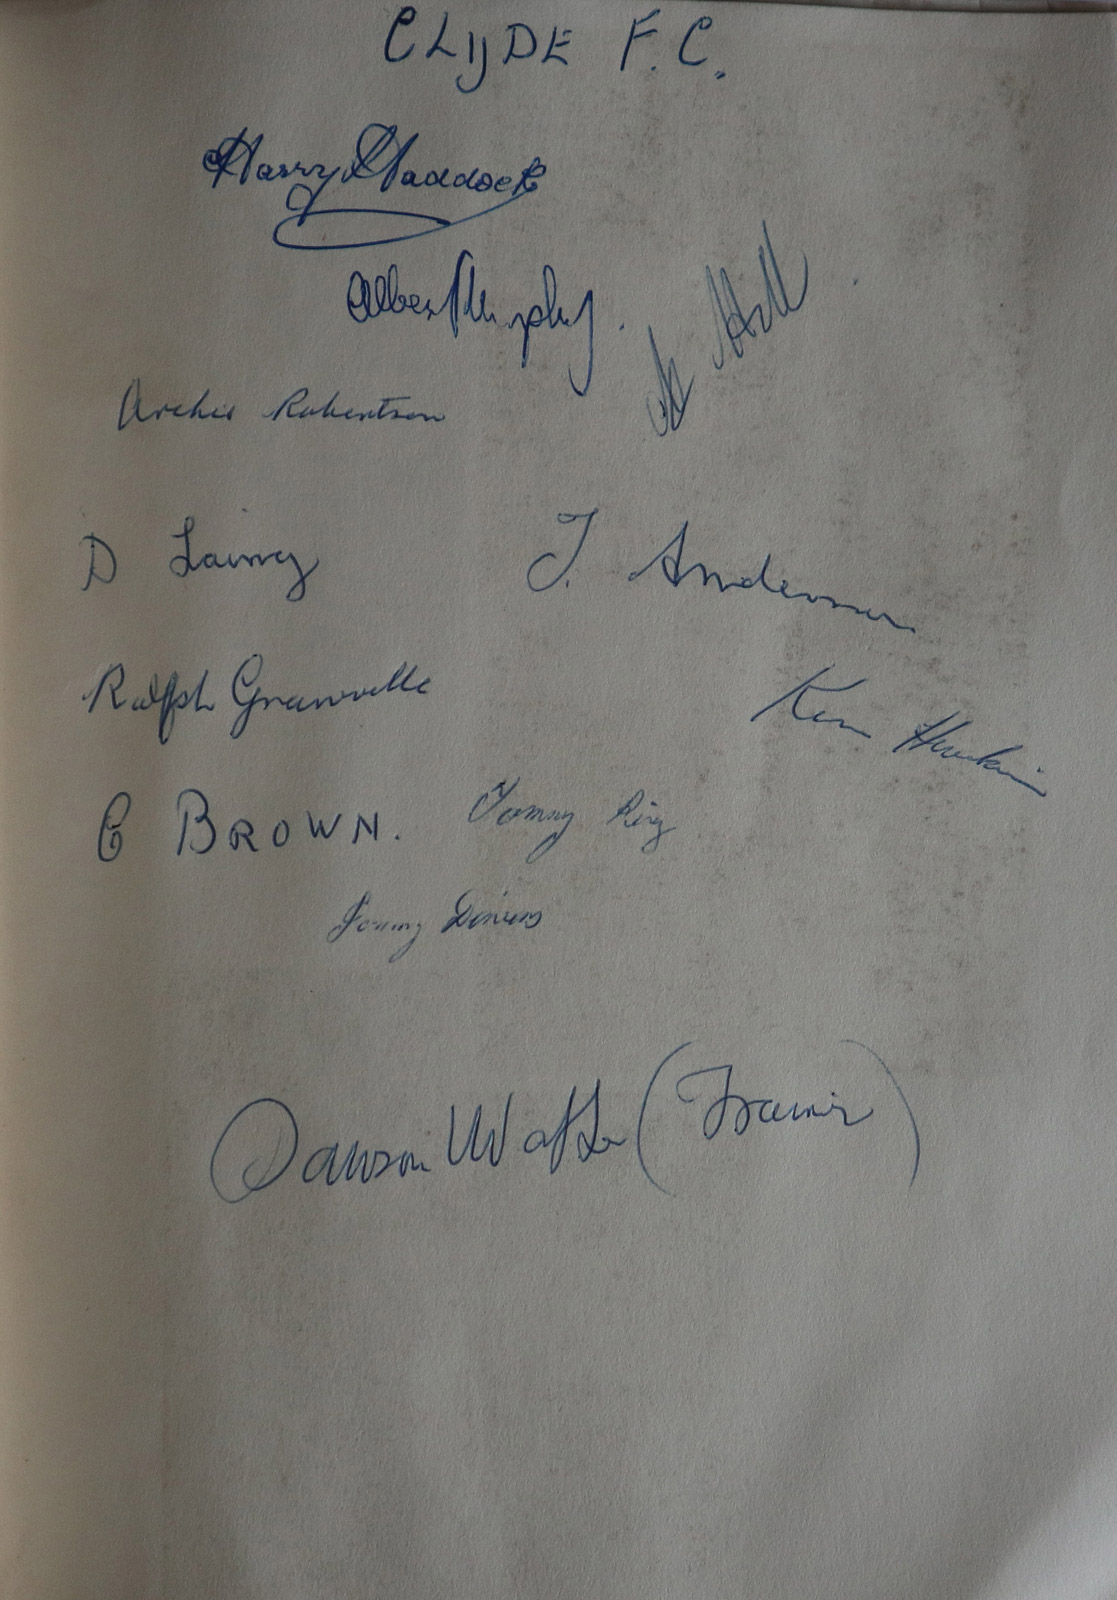 CLYDE F.C.
Harry Haddock
Albert Murphy.
A Hill
Archie Robertson
D Laing
J. Anderson
Ralph Granville
Ken Hawkin
C BROWN.
Tommy Ring
Tommy
Dawson Walker (Trainer)